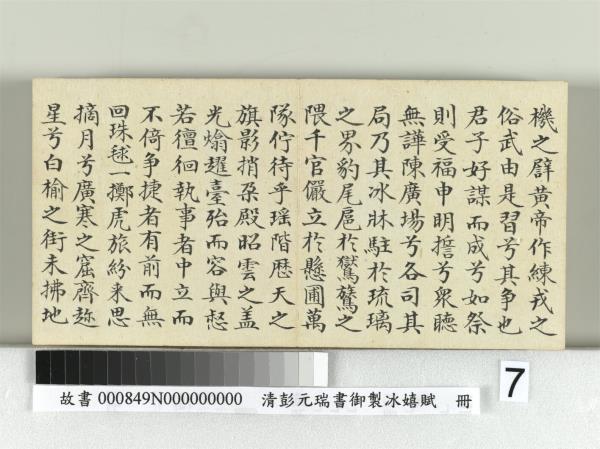 機之辟黃帝作練戎之
俗武由是習兮其爭也
君子好謀而成兮如祭
則受福申明擔兮衆聽
無譁陳廣場兮各司其
局乃其冰牀駐於琉璃
之界豹尾扈於鸑鷟之
隈千官儼立於懸圃萬
隊佇待乎瑶階歴天之
旗影捎朶殿昭雲之盖
光熻趯臺殆而容與惄
若儃徊執事者中立而
不倚爭捷者有前而無
回珠毬一擲虎旅紛来思
摘月兮廣寒之窟齊趂
星兮白榆之街未拂地
7
故書 000849N000000000 清彭元瑞書御製冰嬉賦 冊